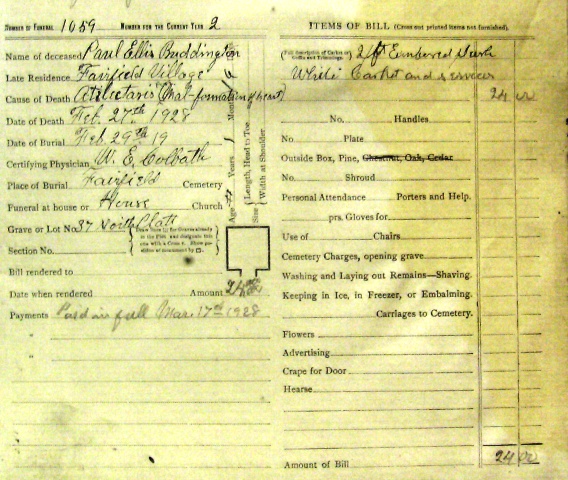 NUMBER OF FUNERAL 1059 NUMBER FOR THE CURRENT YEAR 2
Name of deceased Paul Ellis Buddington
Late Residence Fairfield Village
Cause of Death Atilectaris (Mal-formation of heart)
Date of Death Feb. 27th 1928
Date of Burial Feb. 29th 19
Certifying Physician W. E. Colbath
Place of Burial Fairfield Cemetery
Funeral at house or House Church
Grave or Lot No. 37 North Platt
Section No.
Bill rendered to
Date when rendered Amount 24.00
Payments Paid in full Mar. 17th 1928
"
"
Age Years Months
Size Length, Head to Toe
Width at Shoulder
ITEMS OF BILL (Cross out printed items not furnished).
2 ft Embossed
White Casket and services
24 00
No. Handles
No. Plate
Outside Box, Pine, Chestnut, Oak, Cedar
No. Shroud
Personal Attendance Porters and Help.
prs. Gloves for
Use of Chairs
Cemetery Charges, opening grave
Washing and Laying out Remains—Shaving.
Keeping in Ice, in Freezer, or Embalming.
Carriages to Cemetery.
Flowers
Advertising
Crape for Door
Hearse
Amount of Bill 24 00